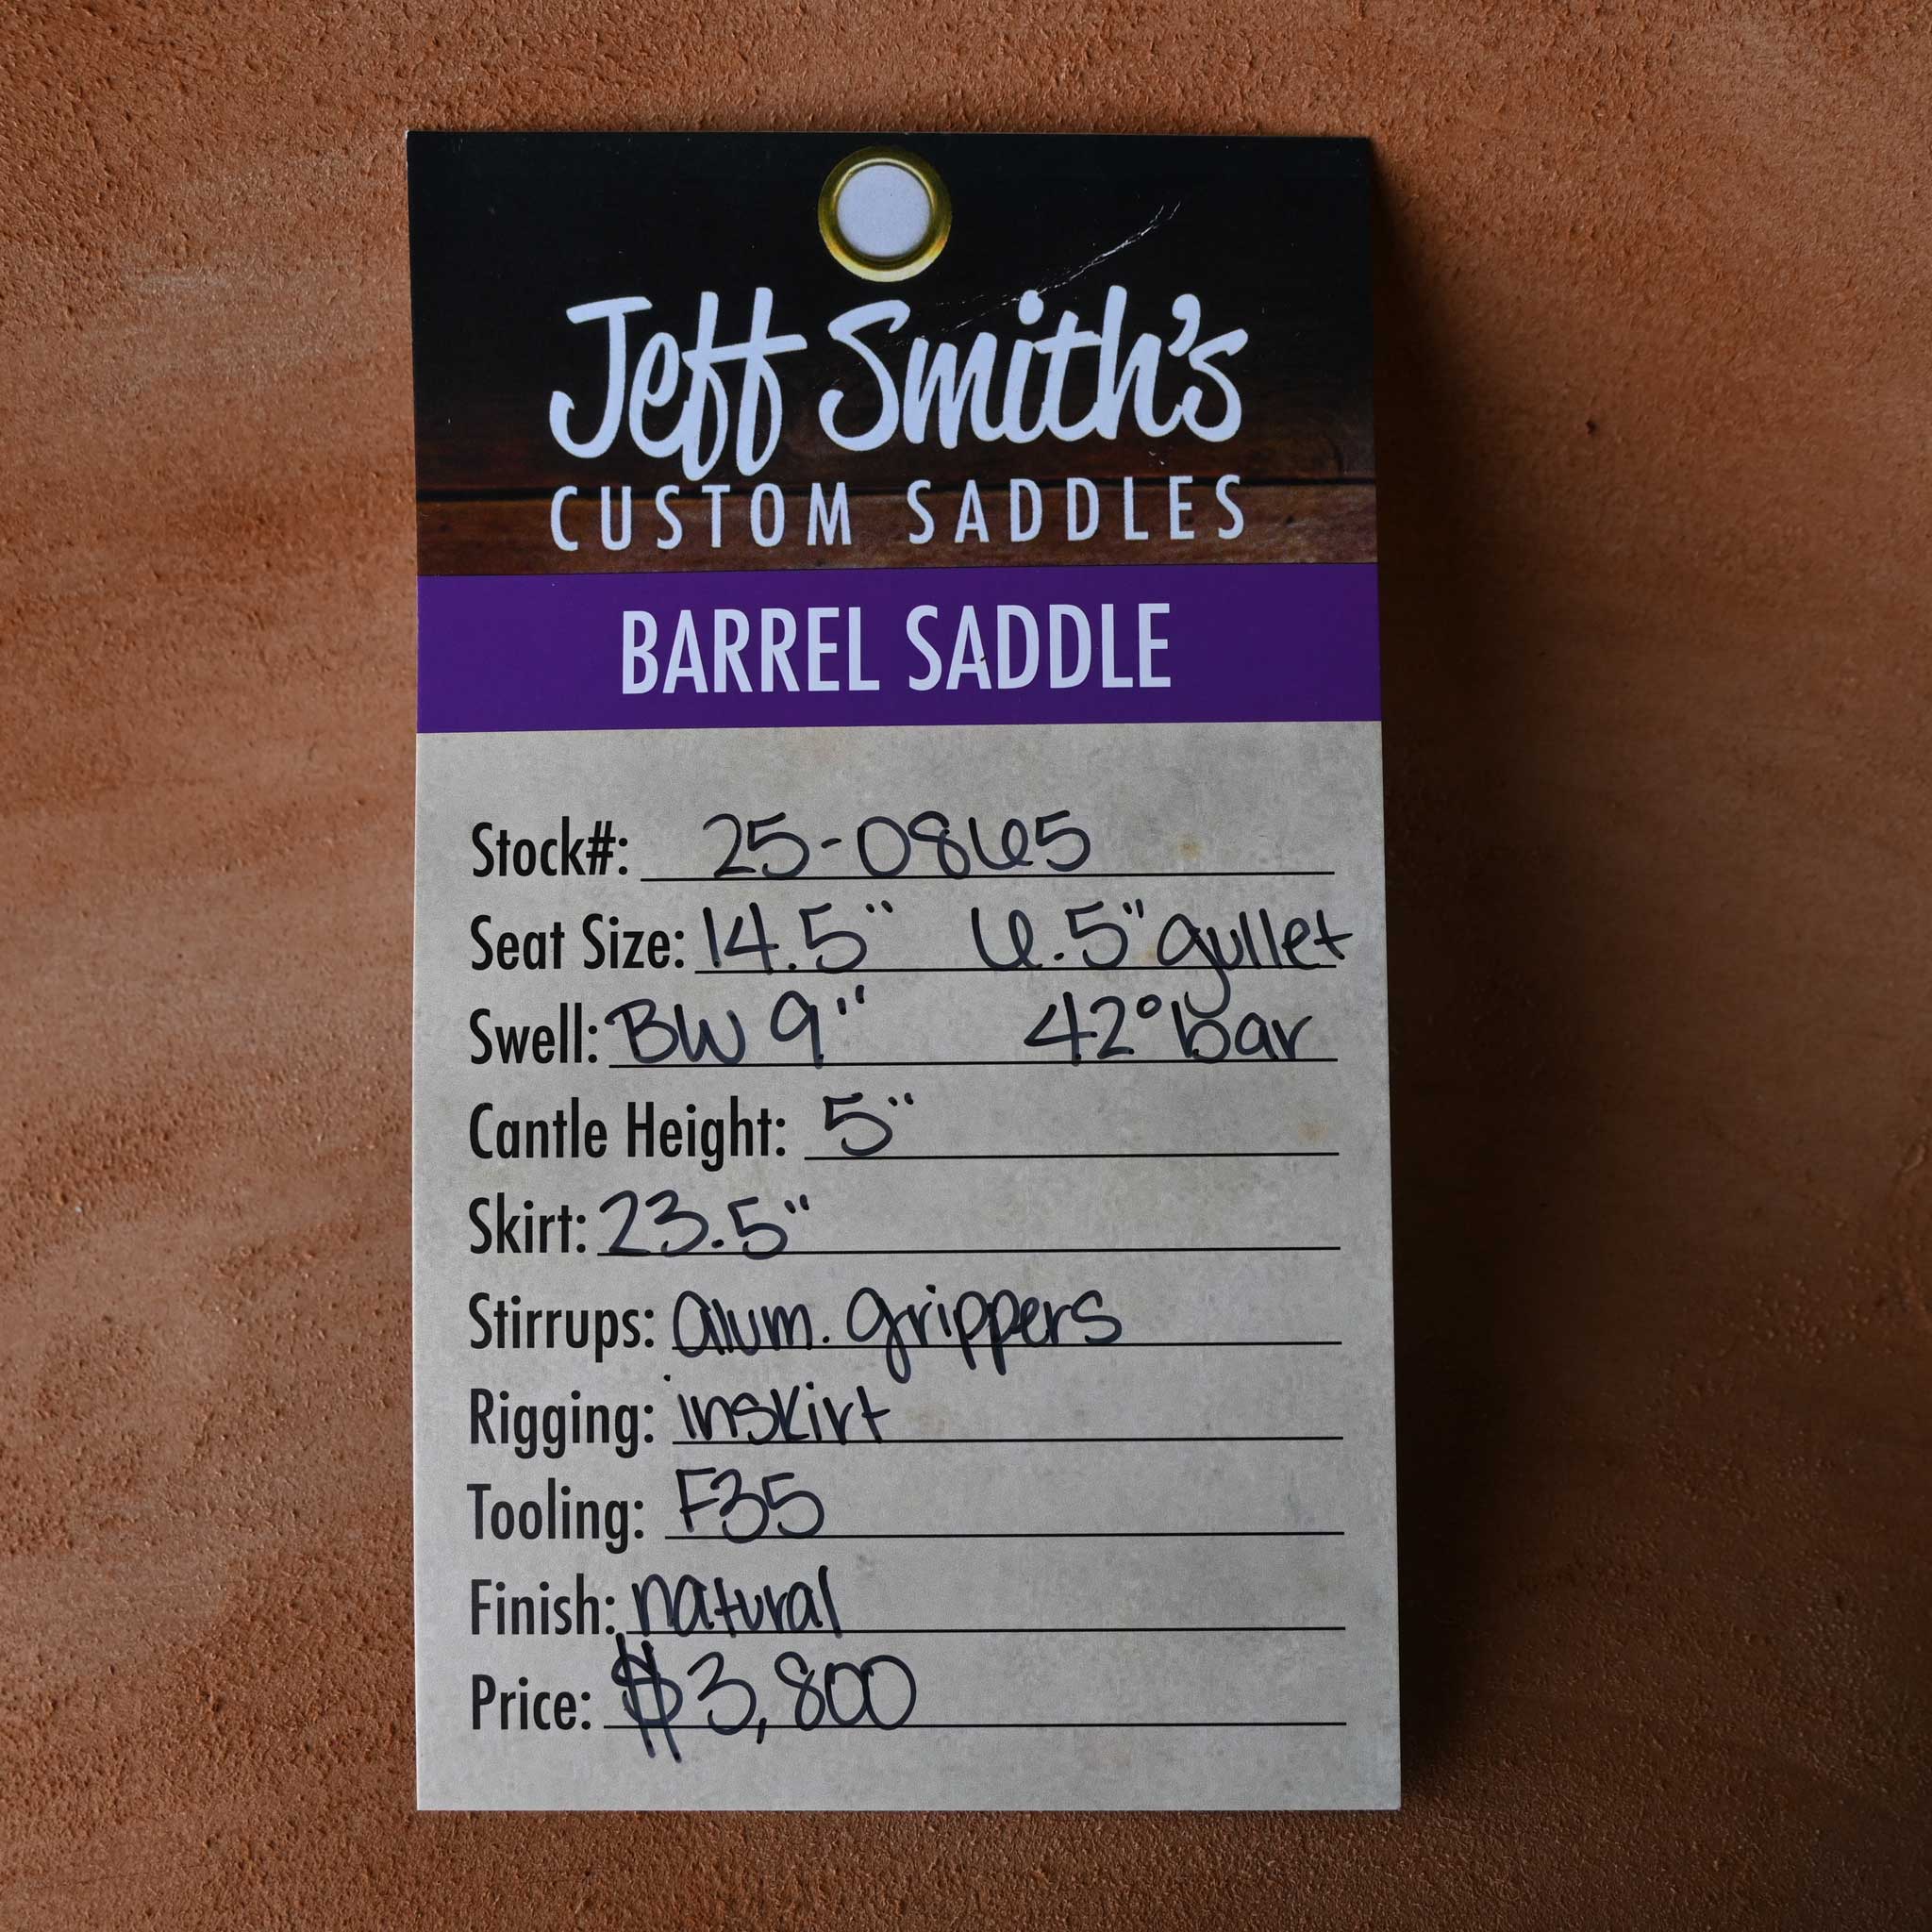 Jeff Smith's
CUSTOM SADDLES
BARREL SADDLE
Stock#: 25-0865
Seat Size: 14.5" 6.5" gullet
Swell: BW 9" 42° bar
Cantle Height: 5"
Skirt: 23.5"
Stirrups: alum. grippers
Rigging: inskirt
Tooling: F35
Finish: natural
Price: $3,800